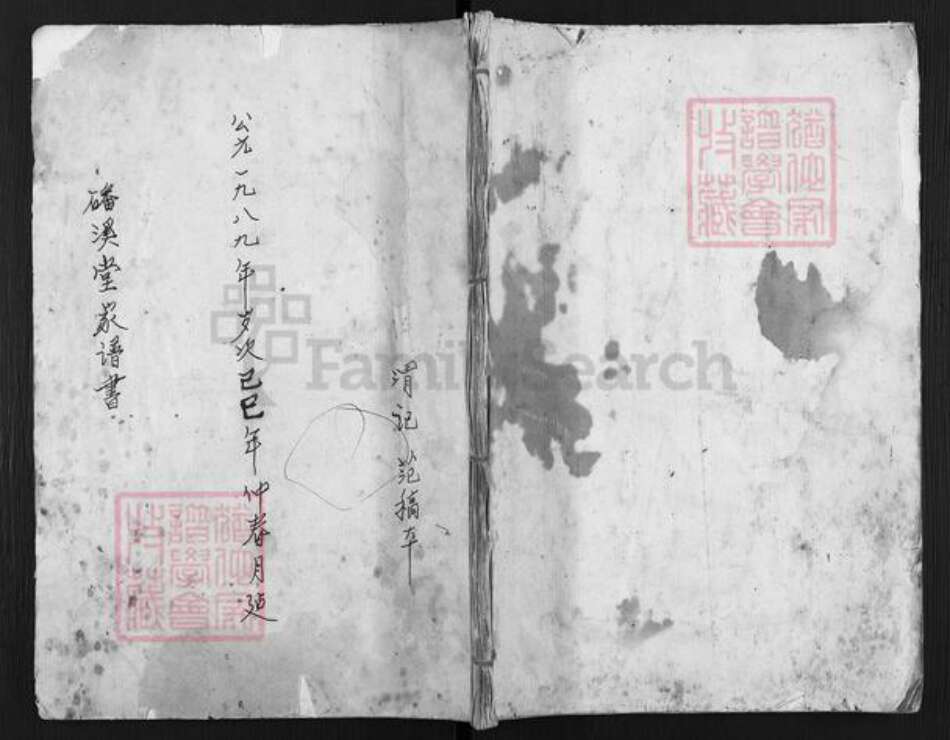 猶他家
譜學會
收藏
渭记范搞本
公元一九八九年岁次己巳年仲春月延
磻溪堂家谱書
猶他家
譜學會
收藏
FamilySearch